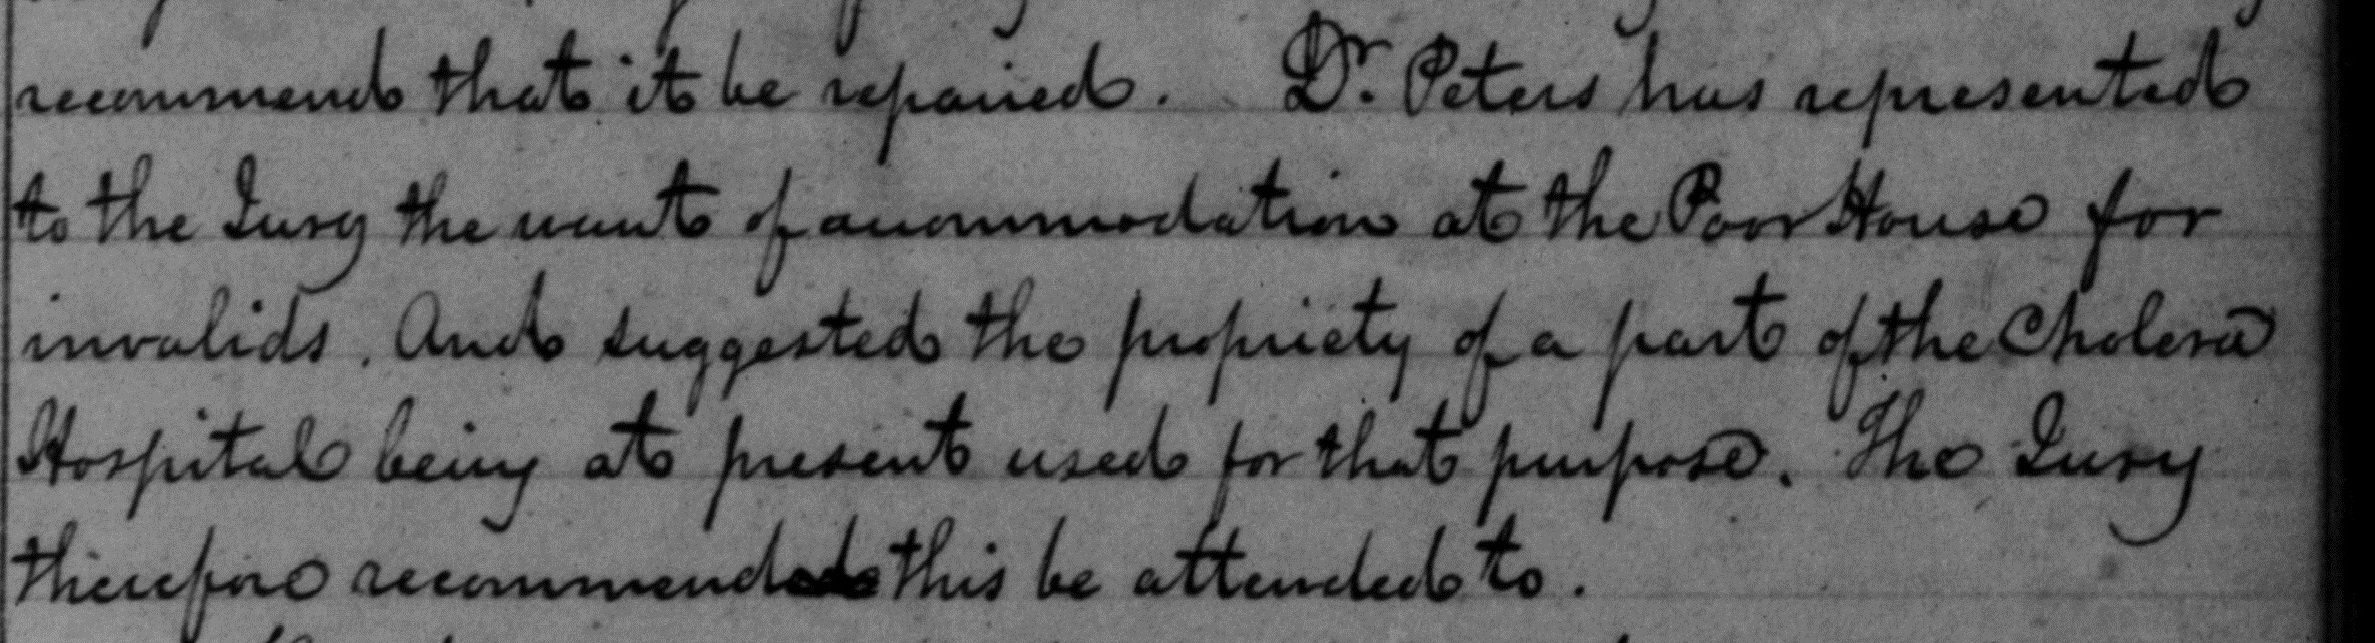 recommend that it be repaired. Dr. Peters has represented
to the Jury the want of accommodation at the Poor House for
invalids. And suggested the propriety of a part of the Cholera
Hospital being at present used for that purpose. The Jury
therefore recommend this be attended to.